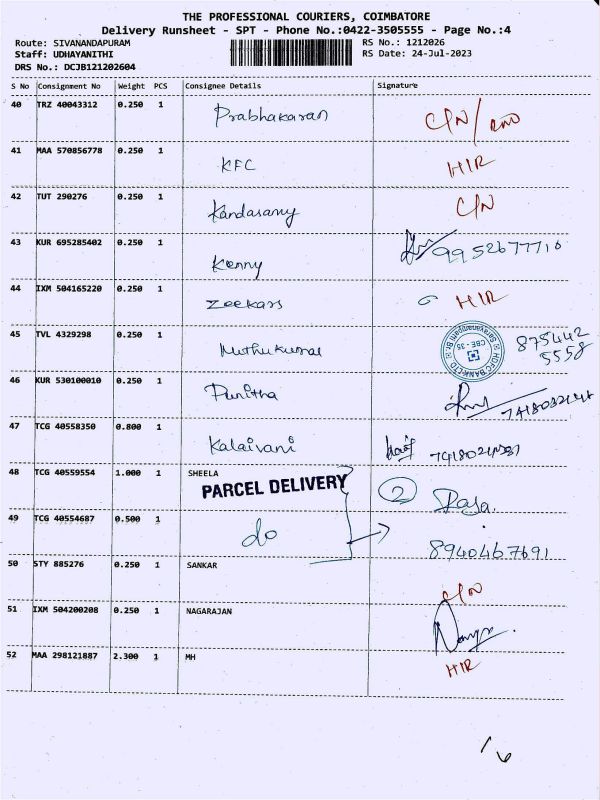 THE PROFESSIONAL COURIERS, COIMBATORE
Delivery Runsheet - SPT - Phone No.:0422-3505555 - Page No.:4
Route: SIVANANDAPURAM RS No.: 1212026
Staff: UDHAYANITHI RS Date: 24-Jul-2023
DRS No.: DCJB121202604
S No Consignment No Weight PCS Consignee Details Signature
40 TRZ 40043312 0.250 1 Prabhakaran C/N/
41 MAA 570856778 0.250 1 KFC HIR
42 TUT 290276 0.250 1 Kandasamy C/N
43 KUR 695285402 0.250 1 Kenny 9952677716
44 IXM 504165220 0.250 1 Zeekars HIR
45 TVL 4329298 0.250 1 Muthukumar HDFC BANK LTD CBE - 35 875442
5558
46 KUR 530100010 0.250 1 Punitha
47 TCG 40558350 0.800 1 Kalaivani
48 TCG 40559554 1.000 1 SHEELA
PARCEL DELIVERY 2 Raja.
49 TCG 40554687 0.500 1 do 8940467691
50 STY 885276 0.250 1 SANKAR C/N
51 IXM 504200208 0.250 1 NAGARAJAN
52 MAA 298121887 2.300 1 MH HIR